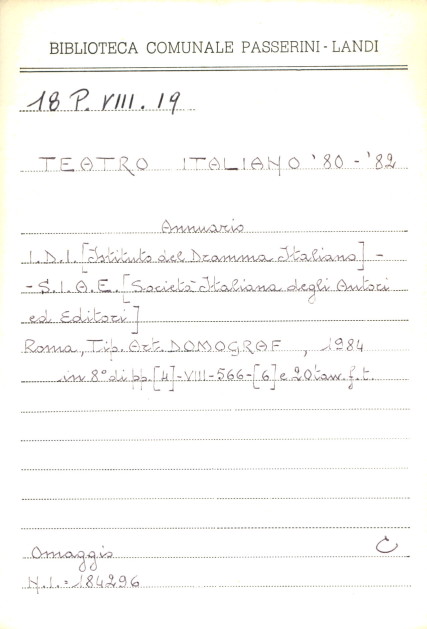 BIBLIOTECA COMUNALE PASSERINI - LANDI
18 P. VIII. 19
TEATRO ITALIANO '80 - '82
Annuario
I.D.I. [Istituto del Dramma Italiano] -
- S.I.A.E. [Società Italiana degli Autori
ed Editori]
Roma, Tip. Art. DOMOGRAF , 1984
in 8° di pp. [4]-VIII-566-[6] e 20 tav. f. t.
Omaggio
C
N.I.: 184296